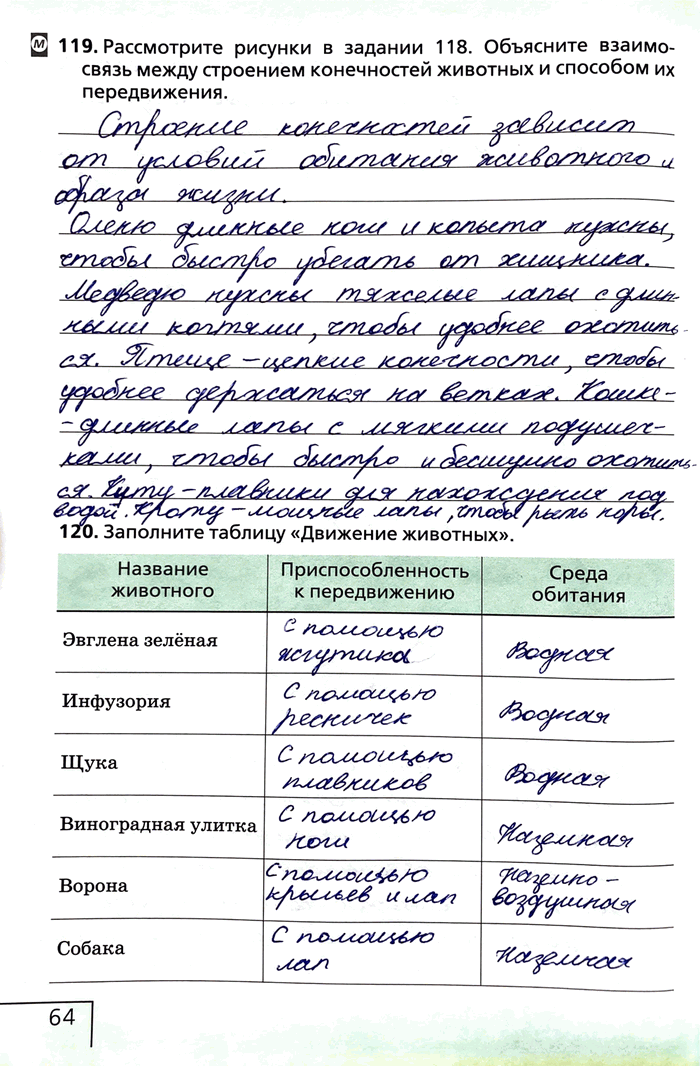 М 119. Рассмотрите рисунки в задании 118. Объясните взаимо-
связь между строением конечностей животных и способом их
передвижения.
Строение конечностей зависит
от условий обитания животного и
образа жизни.
Оленю длинные ноги и копыта нужны,
чтобы быстро убегать от хищника.
Медведю нужны тяжелые лапы с длин-
ными когтями, чтобы удобнее охотить-
ся. Птице – цепкие конечности, чтобы
удобнее держаться на ветках. Кошке -
- длинные лапы с мягкими подушеч-
ками, чтобы быстро и бесшумно охотить-
ся. Киту – плавники для нахождения под
водой. Кроту – мощные лапы, чтобы рыть норы.
120. Заполните таблицу «Движение животных».
Название животного | Приспособленность к передвижению | Среда обитания
Эвглена зелёная | С помощью жгутика | Водная
Инфузория | С помощью ресничек | Водная
Щука | С помощью плавников | Водная
Виноградная улитка | С помощью ноги | Наземная
Ворона | С помощью крыльев и лап | Наземно-воздушная
Собака | С помощью лап | Наземная
64